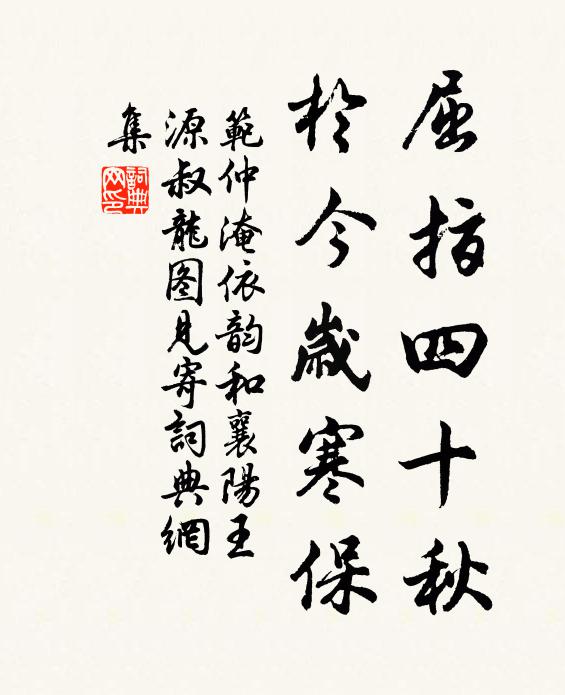 屈指四十秋
於今歲寒保
範仲淹依韵和襄陽王
源叔龍图見寄詞典網
集
詞典网印